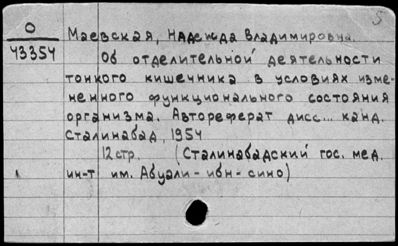 5
О
43354
Маевская, Надежда Владимировна.
Об отделительной деятельности
тонкого кишечника в условиях изме-
ненного функционального состояния
организма. Автореферат дисс... канд.
Сталинабад, 1954
12 стр. (Сталинабадский гос. мед.
ин-т им. Абуали-ибн-сино)